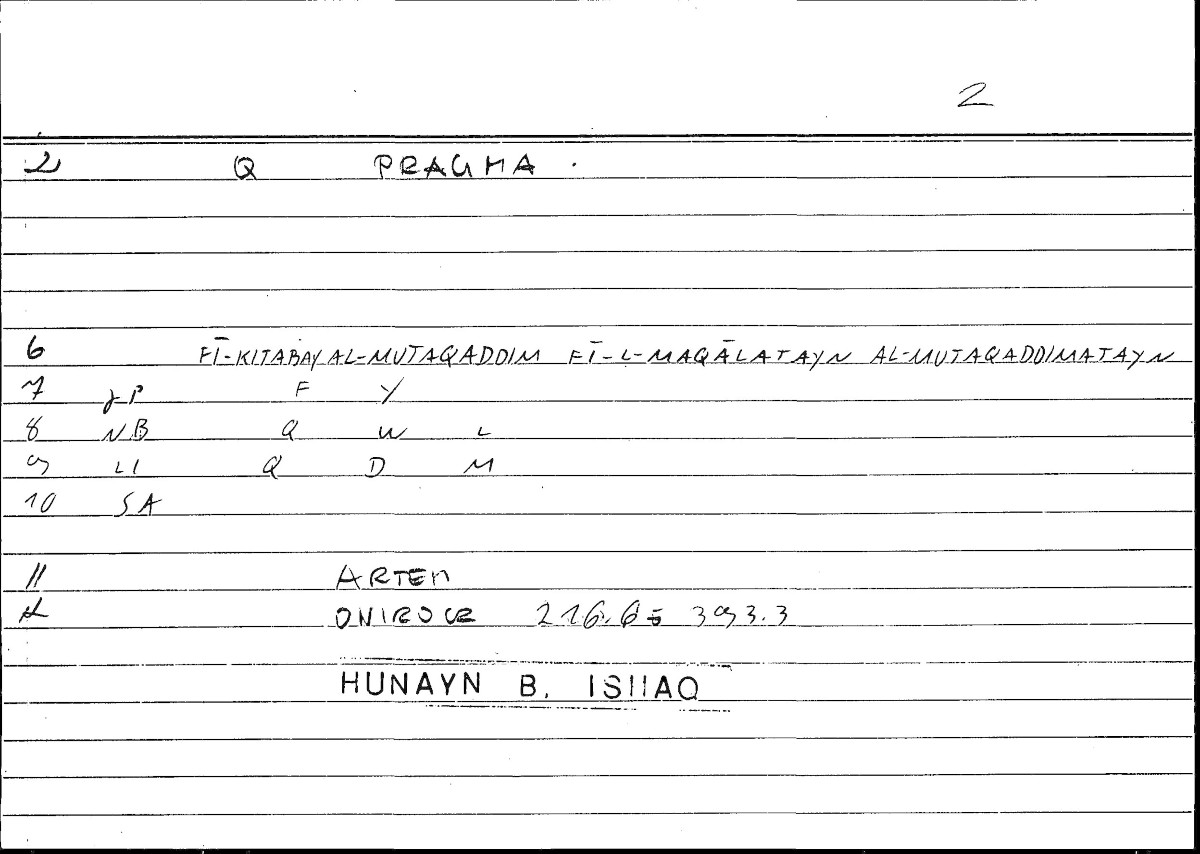 2
2 Q PRAGMA .
6 FĪ-KITABAY AL-MUTAQADDIM FĪ-L-MAQĀLATAYN AL-MUTAQADDIMATAYN
7 JP F Y
8 NB Q W L
9 LI Q D M
10 SA
11 ARTEM
ONIROCR 216.6 = 393.3
HUNAYN B. ISHAQ